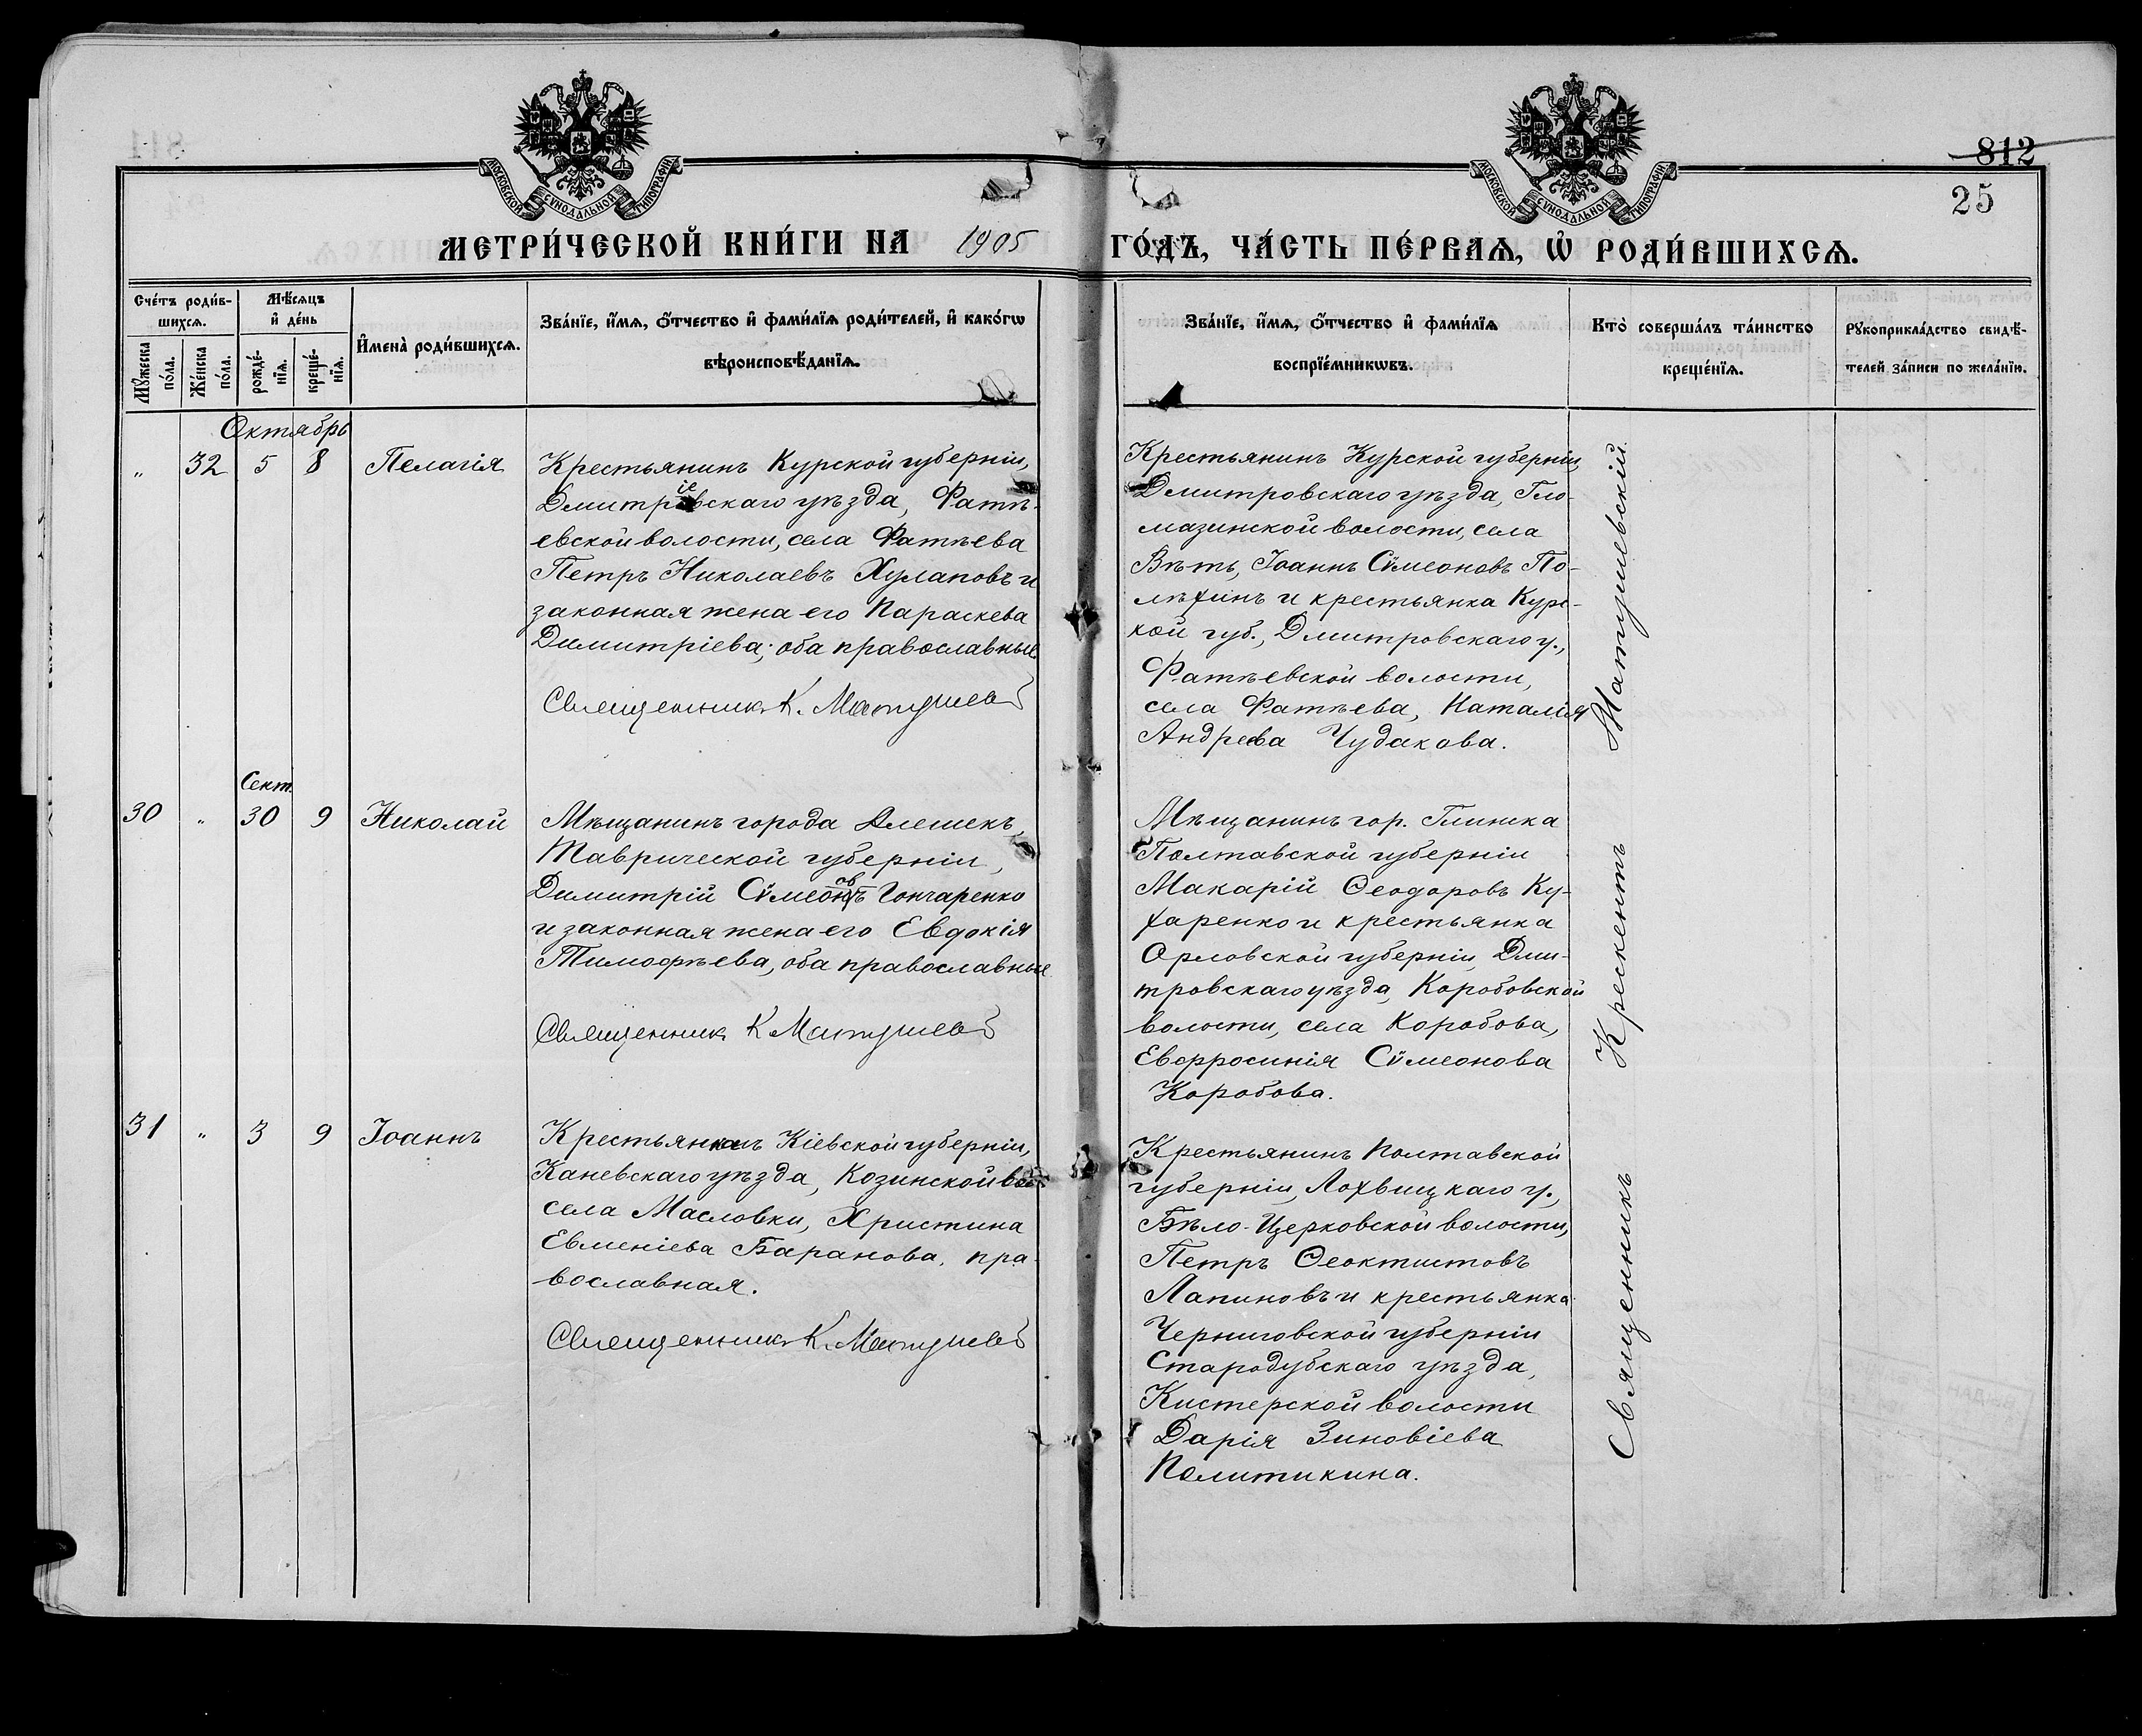 812
25
МОСКОВСКОЙ СѴНОДАЛЬНОЙ ТИПОГРАФІИ
МОСКОВСКОЙ СѴНОДАЛЬНОЙ ТИПОГРАФІИ
МЕТРИ́ЧЕСКОЙ КНИ́ГИ НА 1905 ГО́ДЪ, ЧА́СТЬ ПЕ́РВАѦ, Ѽ РОДИ́ВШИХСѦ.
Сче́тъ роди́в-
шихсѧ.
Мꙋ́жеска
по́ла.
Же́нска
по́ла.
Мѣ́сѧцъ
и҆ де́нь
рожде́-
нїѧ.
креще́-
нїѧ.
И҆мена̀ роди́вшихсѧ.
Зва́нїе, и҆́мѧ, ѻ҆́тчество и҆ фами́лїѧ роди́телей, и҆ како́гѡ
вѣроисповѣ́данїѧ.
Зва́нїе, и҆́мѧ, ѻ҆́тчество и҆ фами́лїѧ
воспрїе́мникѡвъ.
Кто̀ соверша́лъ та́инство
креще́нїѧ.
Рꙋкоприкла́дство свидѣ́-
телей за́писи по жела́нїю.
Октябрь
" 32 5 8 Пелагія
Крестьянинъ Курской губерніи,
Дмитріевскаго уѣзда, Фатѣ-
евской волости, села Фатѣева
Петръ Николаевъ Хулаповъ и
законная жена его Параскева
Димитріева; оба православные
Священник К. Матушев
Крестьянинъ Курской губерніи,
Дмитровскаго уѣзда, Гло-
мазинской волости, села
Вѣть, Іоаннъ Сѵмеоновъ По-
лѣхинъ и крестьянка Курс-
кой губ., Дмитровскаго у.,
Фатѣевской волости,
села Фатѣева, Наталія
Андреева Чудакова.
Сент.
30 " 30 9 Николай
Мѣщанинъ города Алешекъ,
Таврической губерніи,
Димитрій Сѵмеоновъ Гончаренко
и законная жена его Евдокія
Тимофѣева, оба православные
Священник К Матушев
Мѣщанинъ гор. Глинска
Полтавской губерніи
Макарій Ѳеодоровъ Ку-
харенко и крестьянка
Орловской губерніи, Дми-
тровскаго уѣзда, Коробовской
волости, села Коробова,
Евфросинія Сѵмеонова
Коробова.
31 " 3 9 Іоаннъ
Крестьянка Кіевской губерніи,
Каневскаго уѣзда, Козинской вол
села Масловки, Христина
Евменіева Баранова, пра-
вославная.
Священник К. Матушев
Крестьянинъ Полтавской
губерніи, Лохвицкаго у.,
Бѣло-Церковской волости,
Петръ Ѳеоктистовъ
Лапиновъ и крестьянка
Черниговской губерніи
Стародубскаго уѣзда,
Кистерской волости
Дарія Зиновіева
Политикина.
Священникъ Крескентъ Матушевскій